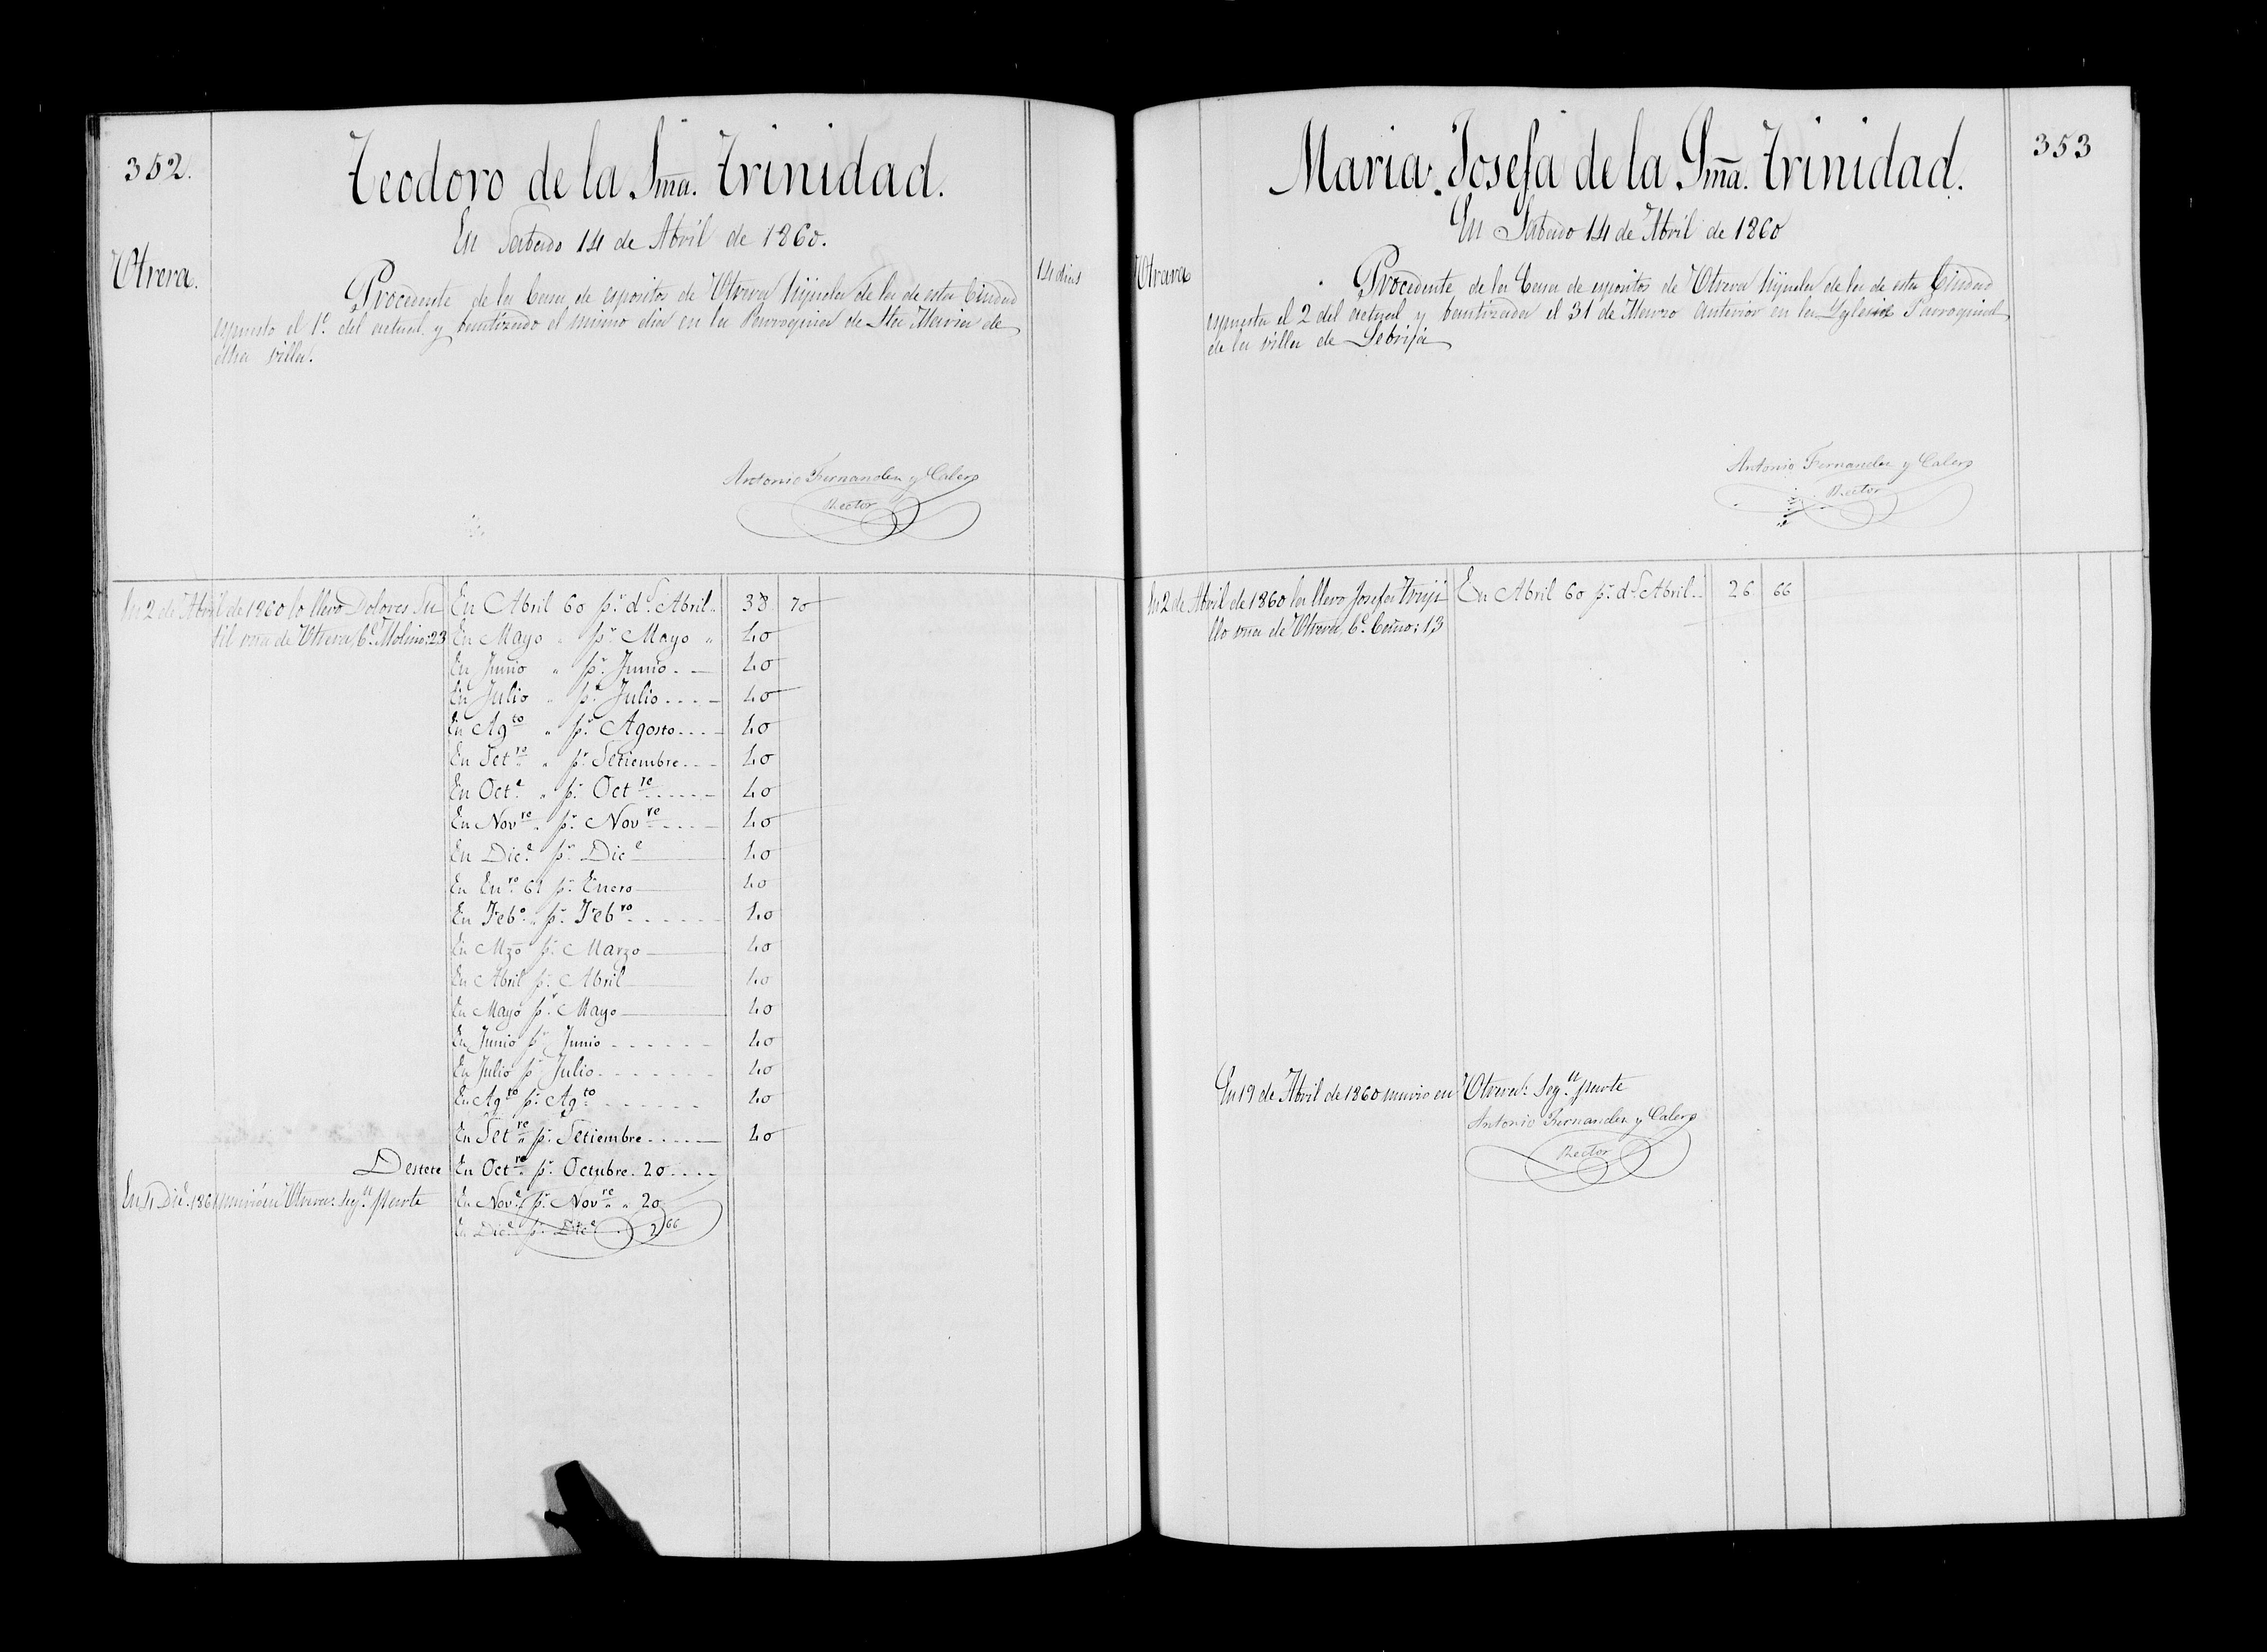 352.
Teodoro de la Sma. Trinidad.
En Sabado 14 de Abril de 1860.
Utrera.
14 dias
Procedente de la Casa de espositos de Utrera hijuela de la de esta Ciudad
espuesto el 1º. del actual y bautizado el mismo dia en la Parroquia de Sta Maria de
dha villa.
Antonio Fernandez y Calero
Rector
En 2 de Abril de 1860 lo llevo Dolores
vna de Utrera, Cе. Molino: 23
En Abril 60 pr. d. Abril 38 70
En Mayo " pr. Mayo " 40
En Junio " pr. Junio 40
En Julio " pr. Julio 40
En Agto " pr. Agosto 40
En Setre " pr. Setiembre 40
En Octe " pr. Octre 40
En Novre " pr. Novre 40
En Dice pr. Dice 40
En Enro 61 pr. Enero 40
En Febo " pr. Febro 40
En Mzo pr. Marzo 40
En Abril pr. Abril 40
En Mayo pr. Mayo 40
En Junio pr. Junio 40
En Julio pr. Julio 40
En Agto pr. Agto 40
En Setre pr. Setiembre 40
Destete En Octre pr. Octubre. 20
En 4 Dice. 1861 murió en Utrera: segn parte
En Nove pr. Novre " 20
En Dice pr. Dice 2,66
353
Maria Josefa de la Sma. Trinidad.
En Sabado 14 de Abril de 1860
Utrera
Procedente de la Casa de espositos de Utrera hijuela de la de esta Ciudad
espuesta el 2 del actual y bautizada el 31 de Marzo anterior en la Yglesia Parroquial
de la villa de Lebrija
Antonio Fernandez y Calero
Rector
En 2 de Abril de 1860 la llevo Josefa Truji
llo vna de Utrera, Ce. : 13
En Abril 60 pr. d. Abril 26 66
En 19 de Abril de 1860 murio en Utrera: Segn parte
Antonio Fernandez y Calero
Rector